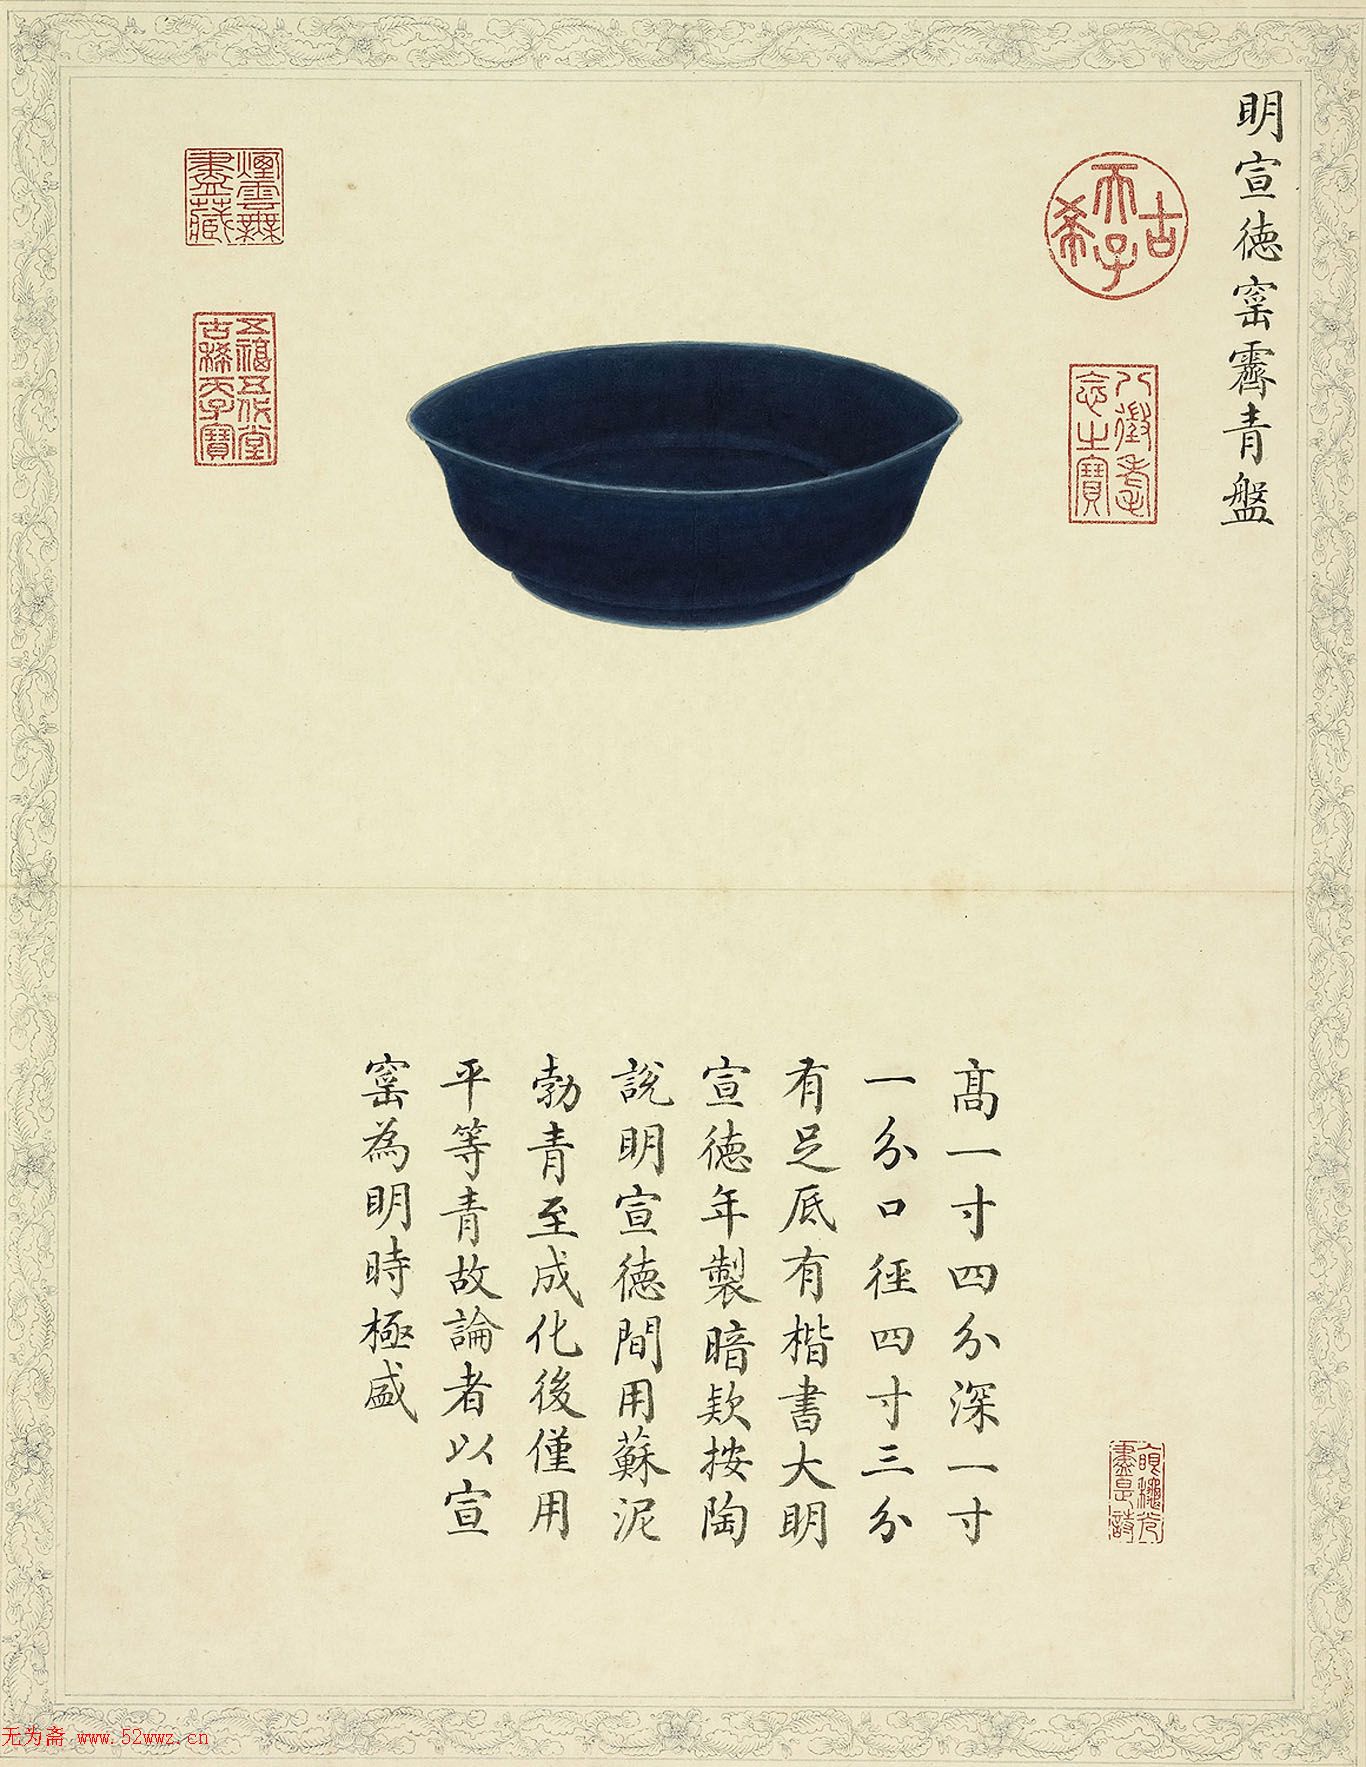 明宣徳窰霽青盤
古
天子
希
八徵耄
念之寶
煙雲無
盡藏
五福五代堂
古稀天子寶
高一寸四分深一寸
一分口徑四寸三分
有足底有楷書大明
宣徳年製暗款按陶
說明宣徳間用蘇泥
勃青至成化後僅用
平等青故論者以宣
窰為明時極盛
盡是詩
无为斋 www.52wwz.cn